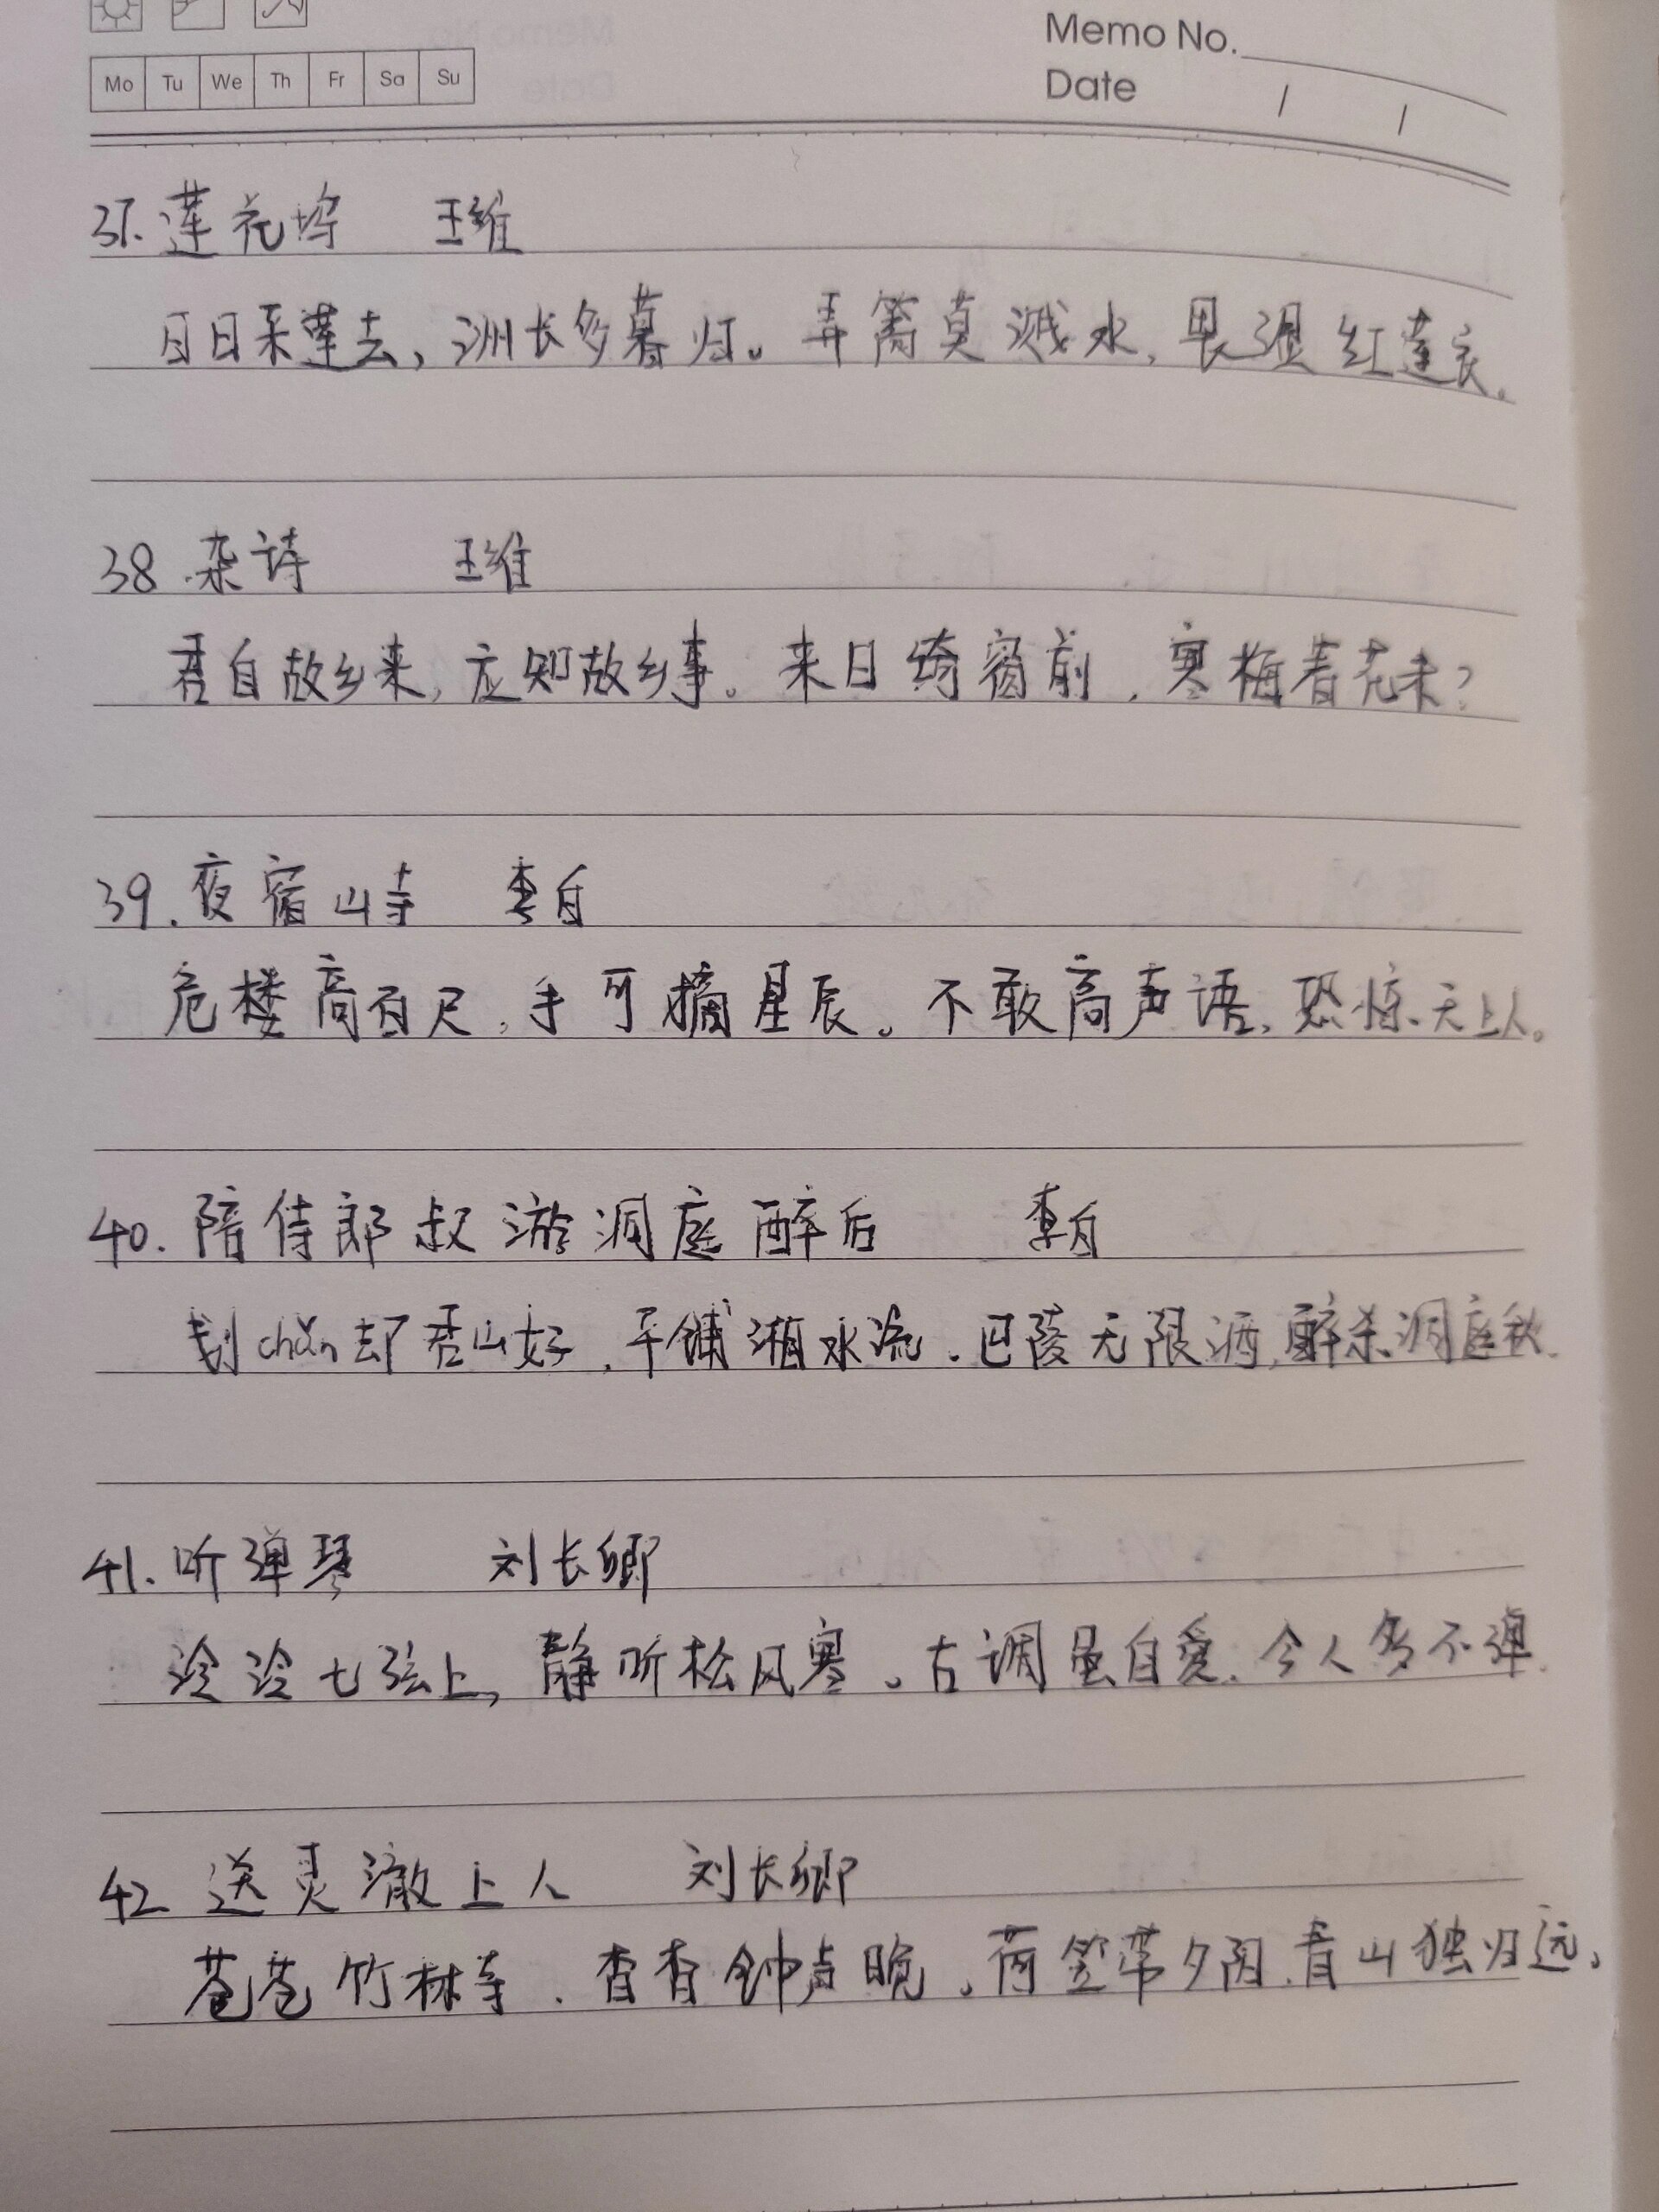 Memo No.
Mo Tu We Th Fr Sa Su
Date / /
37. 莲花坞 王维
日日采莲去，洲长多暮归。弄篙莫溅水，畏湿红莲衣。
38. 杂诗 王维
君自故乡来，应知故乡事。来日绮窗前，寒梅着花未？
39. 夜宿山寺 李白
危楼高百尺，手可摘星辰。不敢高声语，恐惊天上人。
40. 陪侍郎叔游洞庭醉后 李白
刬chǎn却君山好，平铺湘水流．巴陵无限酒，醉杀洞庭秋．
41. 听弹琴 刘长卿
泠泠七弦上，静听松风寒。古调虽自爱．今人多不弹．
42 送灵澈上人 刘长卿
苍苍竹林寺．杳杳钟声晚。荷笠带夕阳．青山独归远。